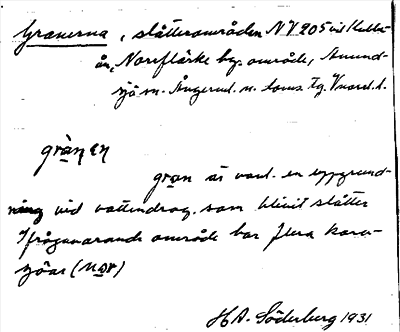 Granerna, slåtterområden NV 205 vid Kubb-
ån, Norrflärke by. område, Anund-
sjö sn. Ångerml. n. toms. Fg. V nord. d.
grànen
gran är vanl. en uppgrund-
ning vid vattendrag, som blivit slåtter
Ifrågavarande område har flera kara-
sjöar (nor)
H.A. Söderberg 1931